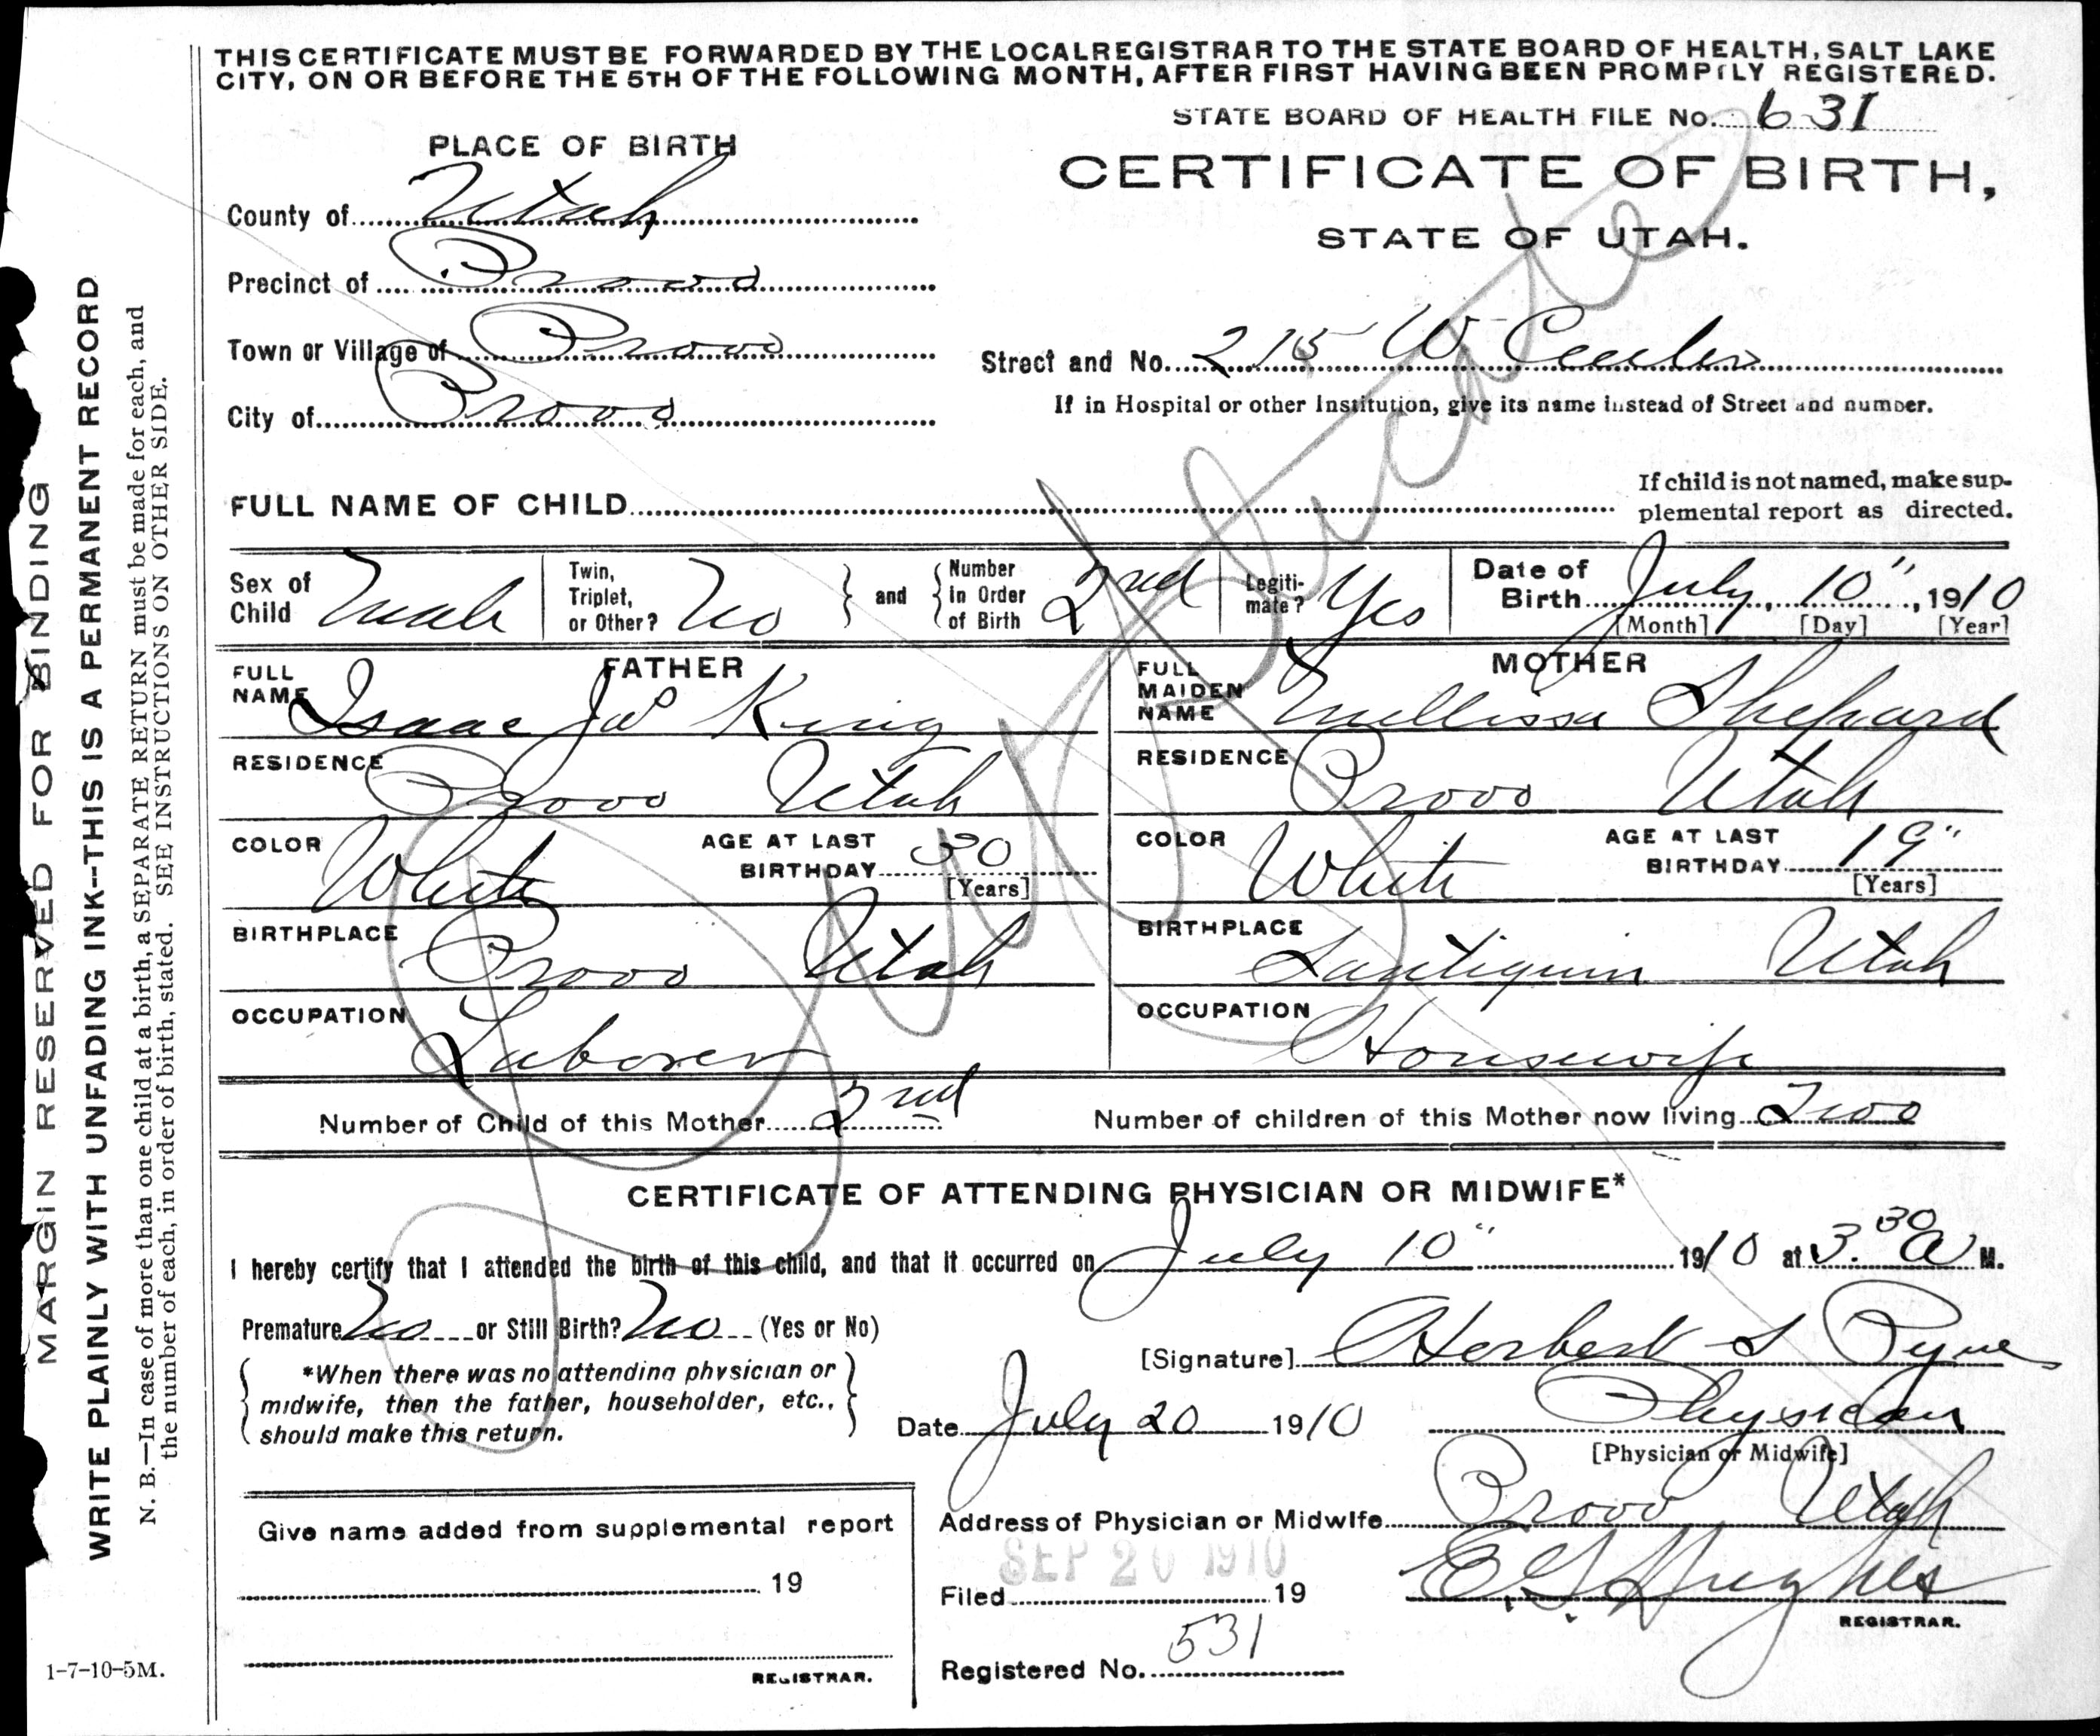 THIS CERTIFICATE MUST BE FORWARDED BY THE LOCAL REGISTRAR TO THE STATE BOARD OF HEALTH, SALT LAKE
CITY, ON OR BEFORE THE 5TH OF THE FOLLOWING MONTH, AFTER FIRST HAVING BEEN PROMPTLY REGISTERED.
STATE BOARD OF HEALTH FILE No. 631
PLACE OF BIRTH
CERTIFICATE OF BIRTH,
STATE OF UTAH.
County of Utah
Precinct of Provo
Town or Village of Provo
Street and No. 215 W Center
City of Provo
If in Hospital or other Institution, give its name instead of Street and number.
FULL NAME OF CHILD
If child is not named, make sup-
plemental report as directed.
Sex of Child Male
Twin, Triplet, or Other? No
and
Number in Order of Birth 2nd
Legiti-mate? Yes
Date of Birth July, 10", 1910
[Month] [Day] [Year]
FATHER
FULL NAME Isaac Jas King
MOTHER
FULL MAIDEN NAME Mellissa Shepard
RESIDENCE Provo Utah
RESIDENCE Provo Utah
COLOR White
AGE AT LAST BIRTHDAY 30
[Years]
COLOR White
AGE AT LAST BIRTHDAY 19"
[Years]
BIRTHPLACE Provo Utah
BIRTHPLACE Santiquin Utah
OCCUPATION Laborer
OCCUPATION Housewife
Number of Child of this Mother 2nd
Number of children of this Mother now living Two
CERTIFICATE OF ATTENDING PHYSICIAN OR MIDWIFE*
I hereby certify that I attended the birth of this child, and that it occurred on July 10" 1910 at 3.30 A M.
Premature No or Still Birth? No (Yes or No)
[Signature] Herbert S Pyne
*When there was no attending physician or
midwife, then the father, householder, etc.,
should make this return.
Date July 20 1910
Physician
[Physician or Midwife]
Address of Physician or Midwife Provo Utah
Give name added from supplemental report
19
REGISTRAR.
SEP 20 1910
Filed 19
E. G. Hughes
REGISTRAR.
Registered No. 531
Duplicate
MARGIN RESERVED FOR BINDING
WRITE PLAINLY WITH UNFADING INK--THIS IS A PERMANENT RECORD
N. B.—In case of more than one child at a birth, a SEPARATE RETURN must be made for each, and
the number of each, in order of birth, stated. SEE INSTRUCTIONS ON OTHER SIDE.
1-7-10-5M.